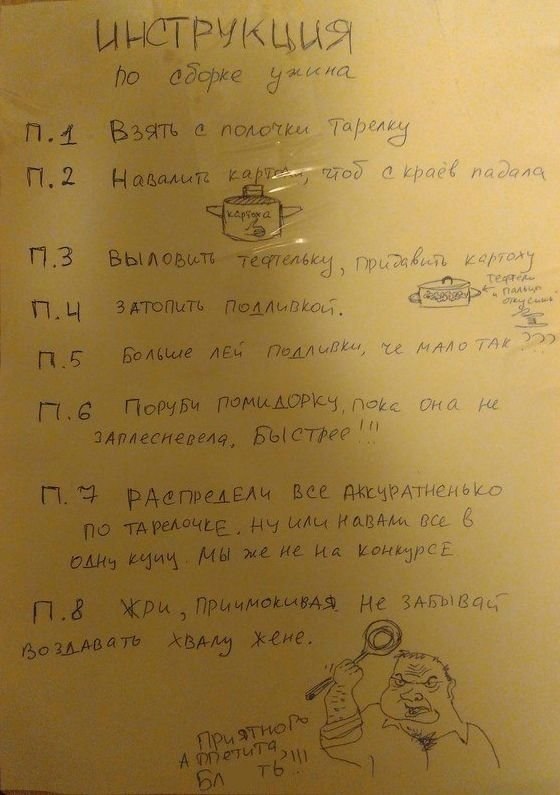 ИНСТРУКЦИЯ
по сборке ужина
П.1 Взять с полочки тарелку
П.2 Навалить картохи, чтоб с краёв падала
картоха
П.3 Выловить тефтельку, придавить картоху
тефтели
и пальцы
откусишь
П.4 Затопить подливкой.
П.5 Больше лей подливки, че мало так ???
П.6 Поруби помидорку, пока она не
заплесневела, быстрее!!!
П.7 Распредели все аккуратненько
по тарелочке. Ну или навали все в
одну кучу. Мы же не на конкурсе
П.8 Жри, причмокивая. Не забывай
воздавать хвалу жене.
Приятного
аппетита,
Бл ть!!!